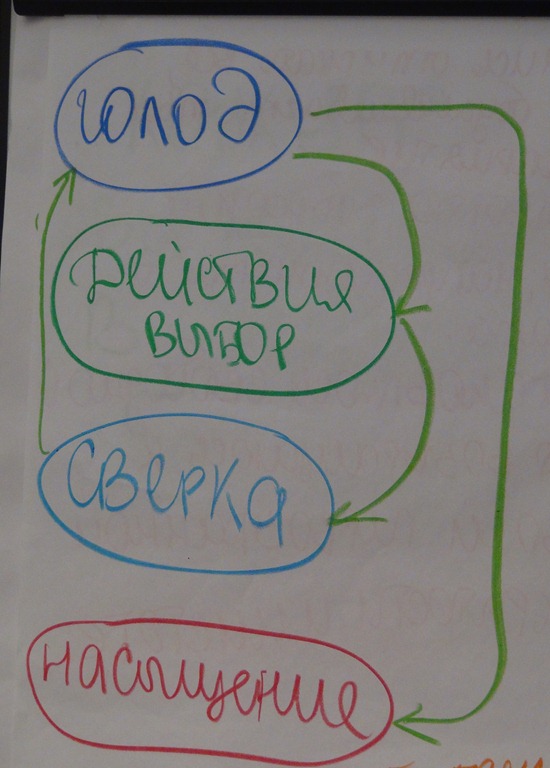 голод
Действия
выбор
сверка
насыщение